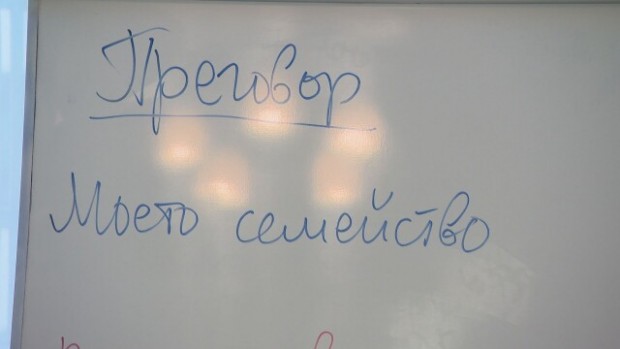 Преговор
Моето семейство